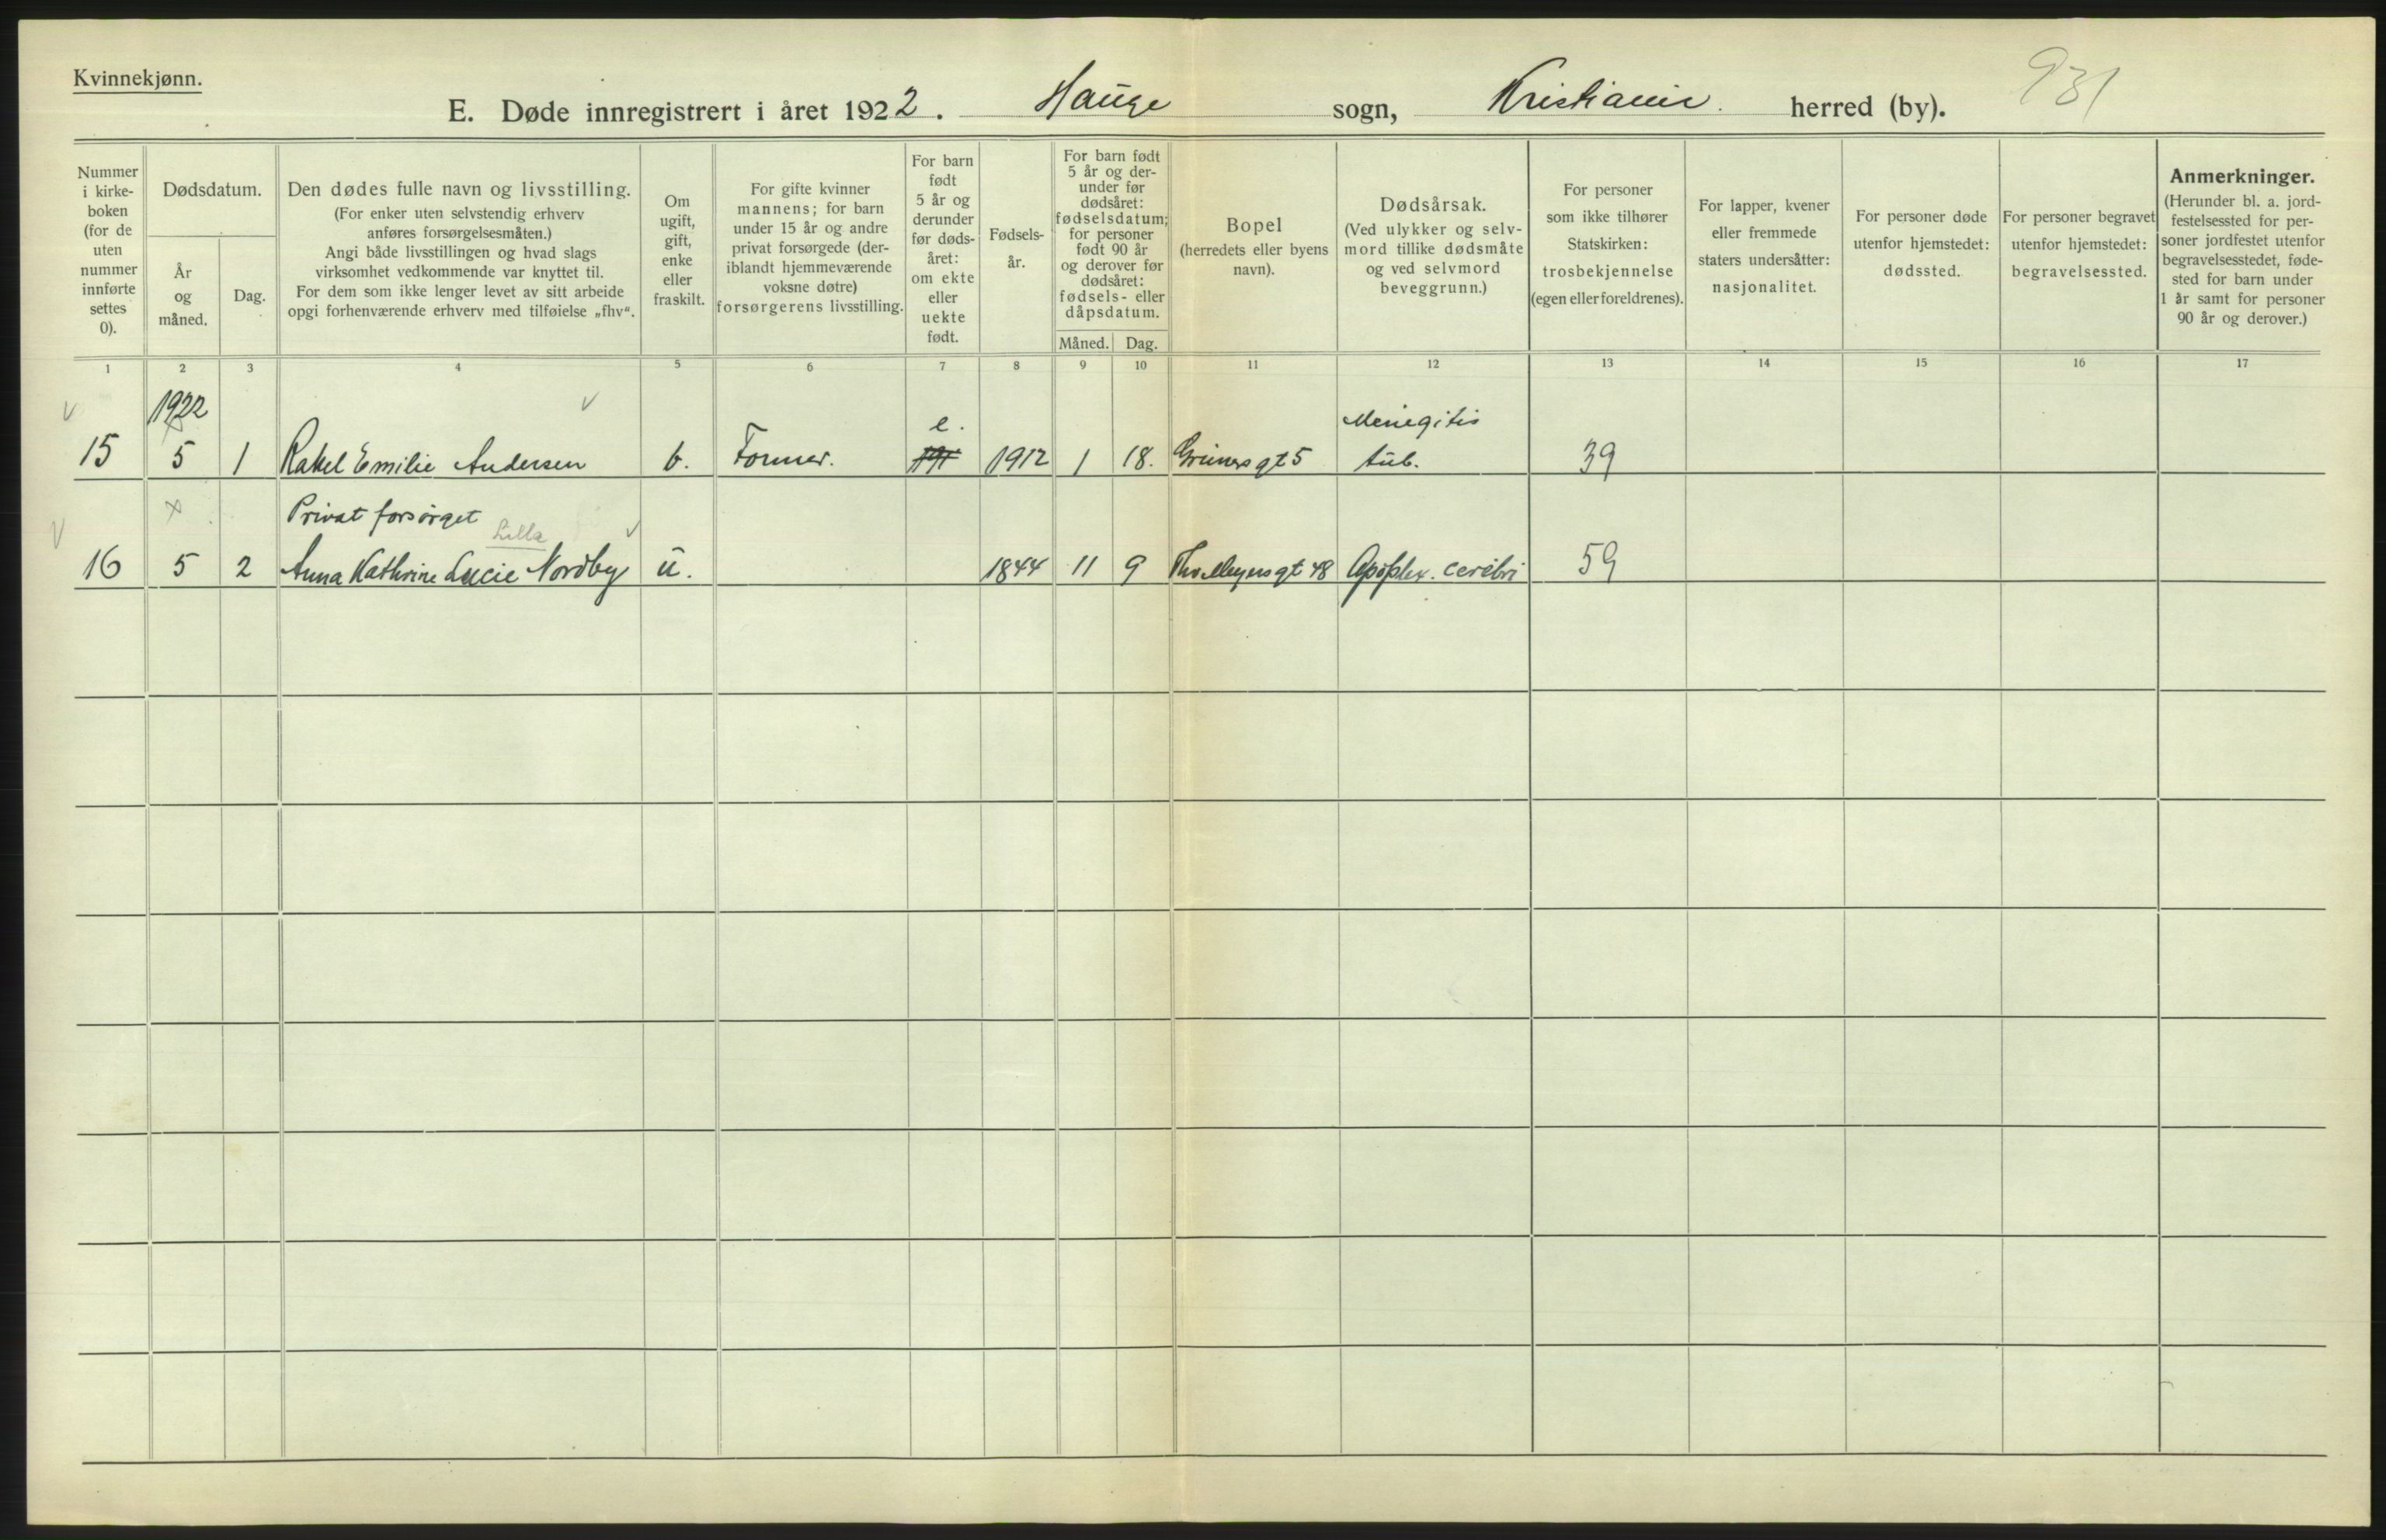 Kvinnekjønn.
931
E. Døde innregistrert i året 1922. Hauge sogn, Kristiania. herred (by).
Nummer
i kirke-
boken
(for de
uten
nummer
innførte
settes
0).
Dødsdatum.
År
og
måned.
Dag.
Den dødes fulle navn og livsstilling.
(For enker uten selvstendig erhverv
anføres forsørgelsesmåten.)
Angi både livsstillingen og hvad slags
virksomhet vedkommende var knyttet til.
For dem som ikke lenger levet av sitt arbeide
opgi forhenværende erhverv med tilføielse „fhv“.
Om
ugift,
gift,
enke
eller
fraskilt.
For gifte kvinner
mannens; for barn
under 15 år og andre
privat forsørgede (der-
iblandt hjemmeværende
voksne døtre)
forsørgerens livsstilling.
For barn
født
5 år og
derunder
før døds-
året:
om ekte
eller
uekte
født.
Fødsels-
år.
For barn født
5 år og der-
under før
dødsåret:
fødselsdatum;
for personer
født 90 år
og derover før
dødsåret:
fødsels- eller
dåpsdatum.
Måned. Dag.
Bopel
(herredets eller byens
navn).
Dødsårsak.
(Ved ulykker og selv-
mord tillike dødsmåte
og ved selvmord
beveggrunn.)
For personer
som ikke tilhører
Statskirken:
trosbekjennelse
(egen eller foreldrenes).
For lapper, kvener
eller fremmede
staters undersåtter:
nasjonalitet.
For personer døde
utenfor hjemstedet:
dødssted.
For personer begravet
utenfor hjemstedet:
begravelsessted.
Anmerkninger.
(Herunder bl. a. jord-
festelsessted for per-
soner jordfestet utenfor
begravelsesstedet, føde-
sted for barn under
1 år samt for personer
90 år og derover.)
1 2 3 4 5 6 7 8 9 10 11 12 13 14 15 16 17
1922
e. Meniegitis
15 5 1 Rakel Emilie Andersen b. Former. 1912 1 18. Grünersgt 5 tub. 39
Privat forsørget
Lilla
16 5 2 Anna Kathrine Lucie Nordby u. 1844 11 9 Thv. Meyersgt 48 Apoplex. cerebri 59